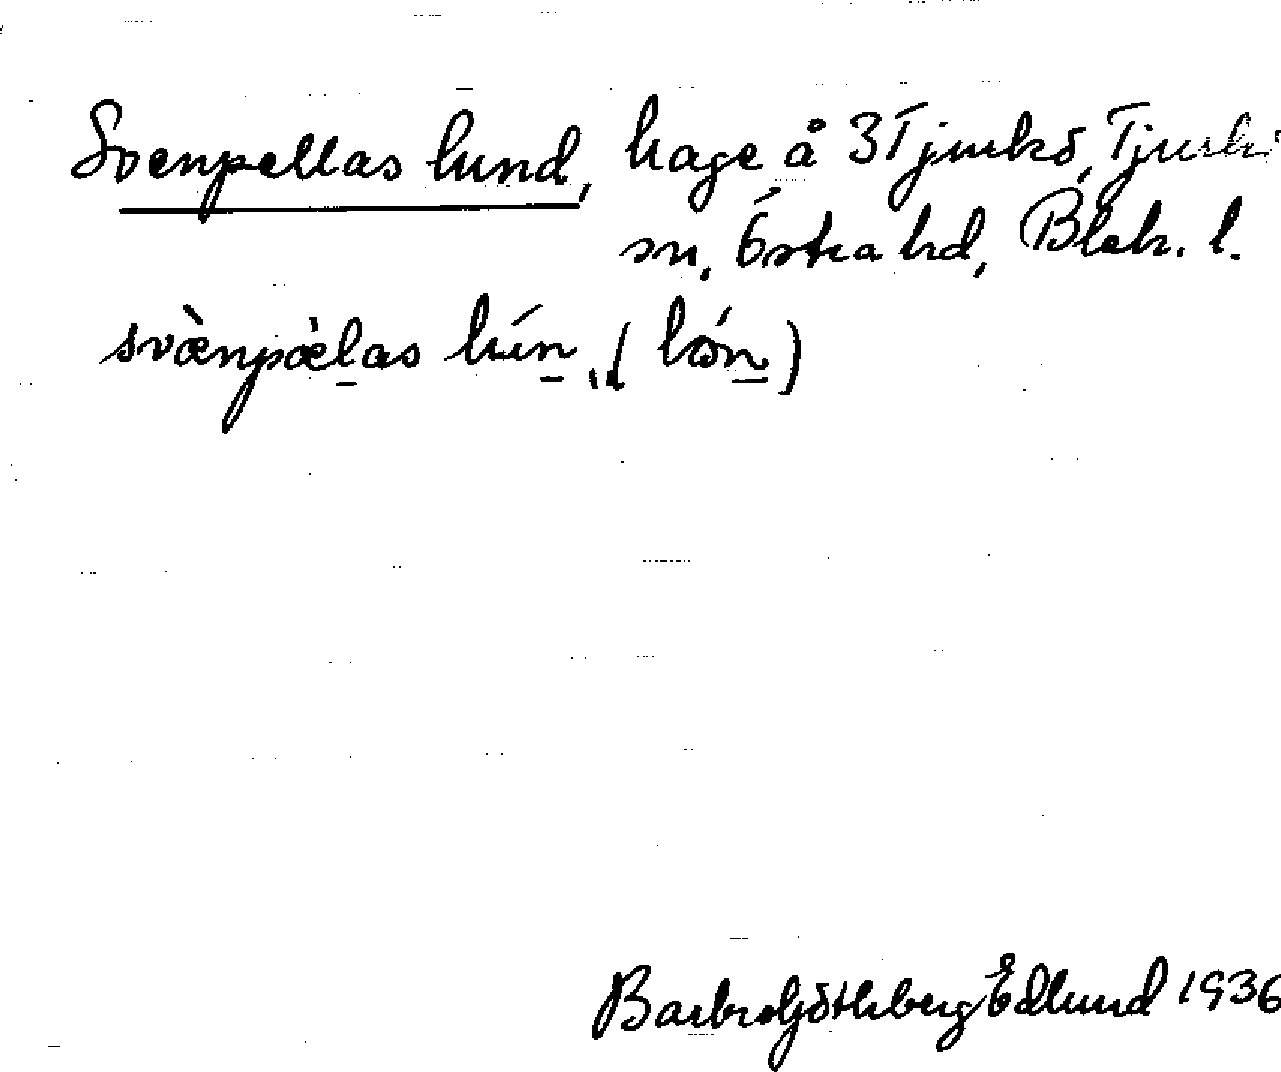 Svenpellas lund, hage å 3 Tjurkö, Tjurkö
sn, Östra hd, Blek. l.
svænpælas lún, (lón)
Barbro Götherberg Edlund 1936